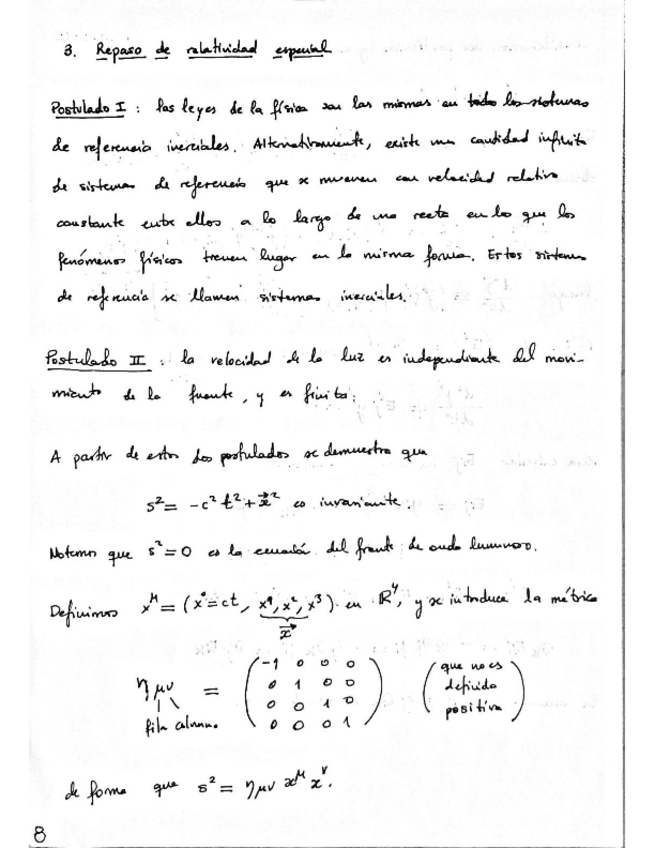 3. Repaso de relatividad especial
Postulado I : las leyes de la física son las mismas en todos los sistemas
de referencia inerciales. Alternativamente, existe una cantidad infinita
de sistemas de referencia que se mueven con velocidad relativa
constante entre ellos a lo largo de una recta en los que los
fenómenos físicos tienen lugar en la misma forma. Estos sistemas
de referencia se llaman sistemas inerciales.
Postulado II : la velocidad de la luz es independiente del movi-
miento de la fuente, y es finita.
A partir de estos dos postulados se demuestra que
s² = -c² t² + x⃗² es invariante.
Notemos que s² = 0 es la ecuación del frente de onda luminoso.
Definimos x^μ = (x⁰ = ct, x¹, x², x³) en ℝ⁴, y se introduce la métrica
x⃗
η_μν = ( -1 0 0 0 ) ( que no es
0 1 0 0 definida
0 0 1 0 positiva )
fila columna 0 0 0 1
de forma que s² = η_μν x^μ x^ν.
8